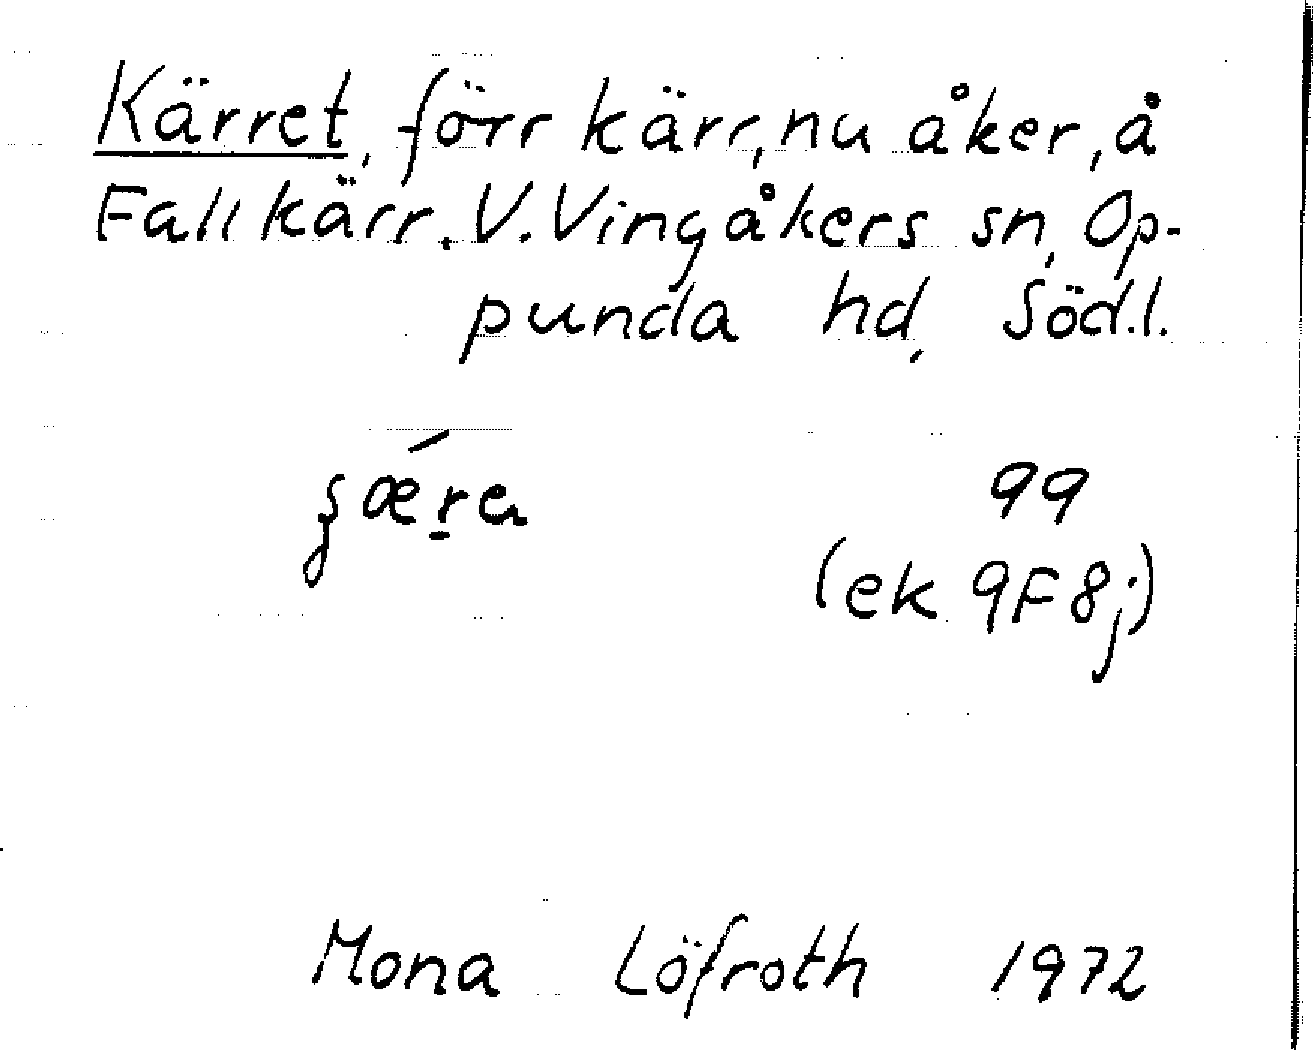 Kärret, förr kärr, nu åker, å
Fallkärr. V. Vingåkers sn, Op-
punda hd, Södl.
99
(ek 9F8j)
Mona Löfroth 1972